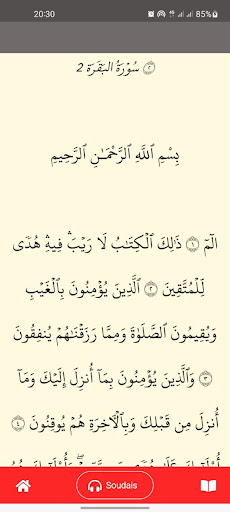 20:30
85%
٢ سُورَةُ البَقَرَة 2
بِسْمِ ٱللَّهِ ٱلرَّحْمَـٰنِ ٱلرَّحِيمِ
الٓمٓ ١ ذَٰلِكَ ٱلْكِتَـٰبُ لَا رَيْبَ ۛ فِيهِ ۛ هُدًى
لِّلْمُتَّقِينَ ٢ ٱلَّذِينَ يُؤْمِنُونَ بِٱلْغَيْبِ
وَيُقِيمُونَ ٱلصَّلَوٰةَ وَمِمَّا رَزَقْنَـٰهُمْ يُنفِقُونَ
٣ وَٱلَّذِينَ يُؤْمِنُونَ بِمَآ أُنزِلَ إِلَيْكَ وَمَآ
أُنزِلَ مِن قَبْلِكَ وَبِٱلْـَٔاخِرَةِ هُمْ يُوقِنُونَ ٤
Soudais